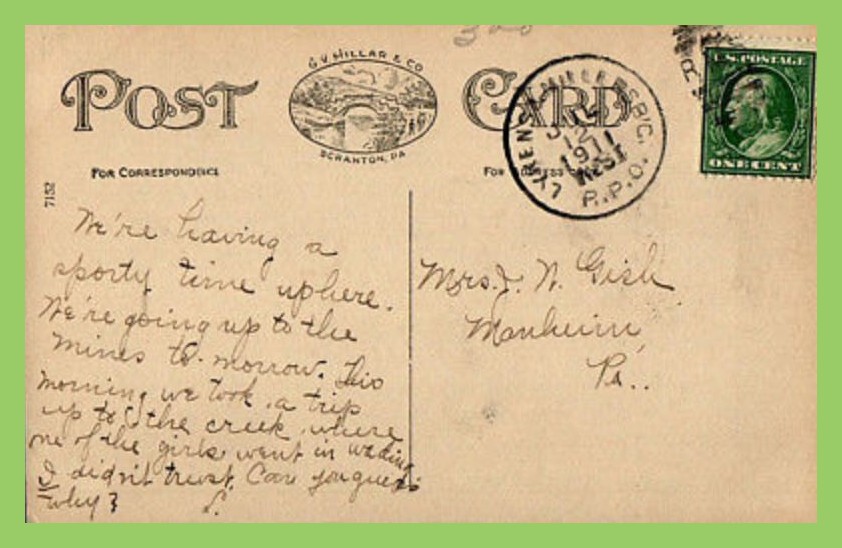 G.V. MILLAR & CO
SCRANTON, PA
POST CARD
FOR CORRESPONDENCE
7152
We're having a
sporty time up here.
We're going up to the
mines to-morrow. This
morning we took a trip
up to the creek where
one of the girls went in wading
I didn't trust. Can you guess
why? S.
LYKENS & MILLERSB'G.
12
1911
WEST
R.P.O.
U.S. POSTAGE
ONE CENT
Mrs. J. N. Gish
Manheim
Pa..